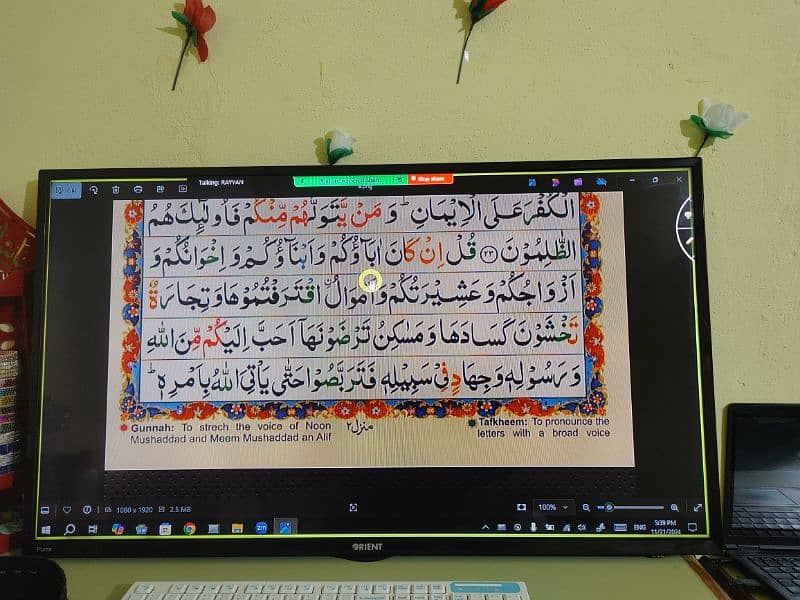 Talking: RAYVAN
Stop share
الۡكُفۡرَ عَلَى الۡاِيۡمَانِ ؕ وَ مَنۡ يَّتَوَلَّهُمۡ مِّنۡكُمۡ فَاُولٰٓئِكَ هُمُ
الظّٰلِمُوۡنَ ﴿۲۳﴾ قُلۡ اِنۡ كَانَ اٰبَآؤُكُمۡ وَ اَبۡنَآؤُكُمۡ وَ اِخۡوَانُكُمۡ وَ
اَزۡوَاجُكُمۡ وَ عَشِيۡرَتُكُمۡ وَ اَمۡوَالُ ۨ اقۡتَرَفۡتُمُوۡهَا وَ تِجَارَةٌ
تَخۡشَوۡنَ كَسَادَهَا وَ مَسٰكِنُ تَرۡضَوۡنَهَاۤ اَحَبَّ اِلَيۡكُمۡ مِّنَ اللّٰهِ
وَ رَسُوۡلِهٖ وَ جِهَادٍ فِىۡ سَبِيۡلِهٖ فَتَرَبَّصُوۡا حَتّٰى يَاۡتِىَ اللّٰهُ بِاَمۡرِهٖ ؕ
Gunnah: To strech the voice of Noon
Mushaddad and Meem Mushaddad an Alif
منزل۲
Tafkheem: To pronounce the
letters with a broad voice
1080 x 1920 2.5 MB
100%
zm
ENG 5:39 PM
11/21/2024
Puma
ORIENT